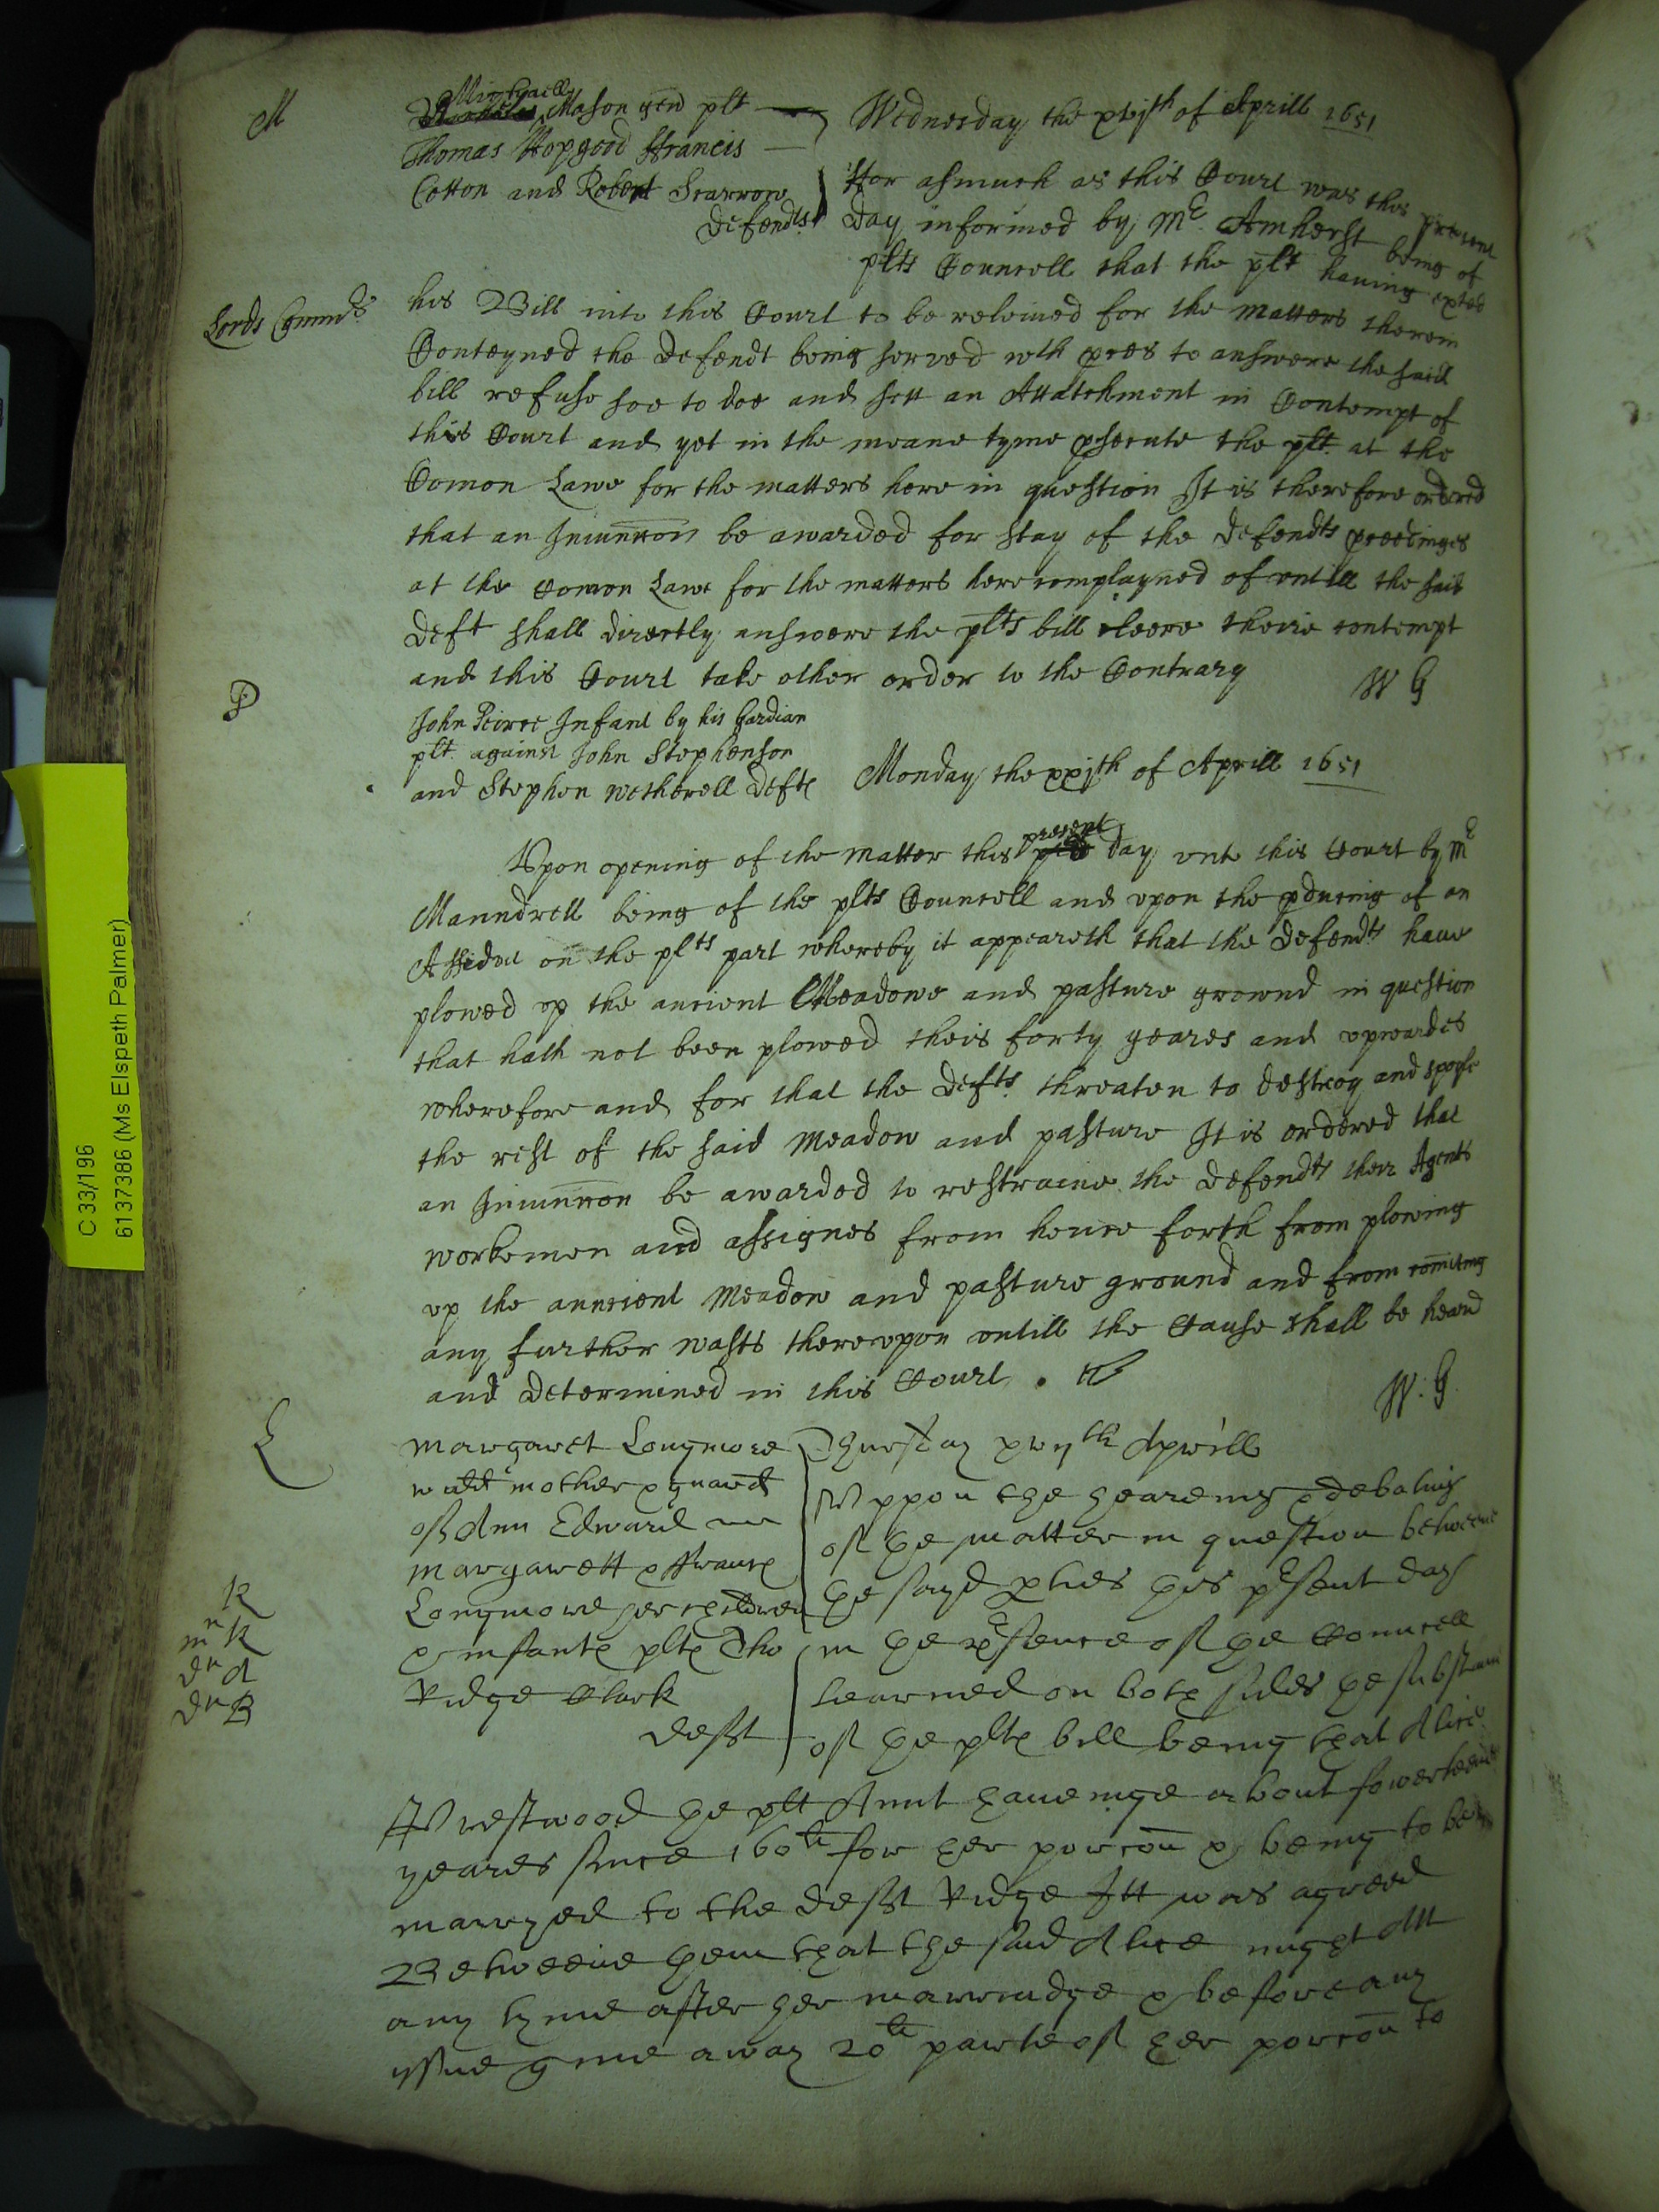 M
Michaell Mason gen plt
Thomas Hopgood Francis
Cotton and Robert Scarrow
defendts
Wednesday the xvjth of Aprill 1651
ffor asmuch as this Court was this present
day informed by Mr. Amherst being of
plts Councell that the plt having exhibited
Lords Commrs
his Bill into this Court to be releived for the matters therein
Conteyned the defendt being served wth pces to answere the said
bill refuse soe to doe and sett an Attatchment in Contempt of
this Court and yet in the meane tyme psecute the plt. at the
Comon Lawe for the matters here in question It is therefore ordered
that an Iniunccon be awarded for stay of the defendts pceedinges
at the Comon Lawe for the matters here complayned of vntill the said
deft shall directly answere the plts bill cleere theire contempt
and this Court take other order to the Contrary
W G
P
John Peirce Infant by his Gardian
plt. against John Stephenson
and Stephen Wetherell defts
Monday the xxjth of Aprill 1651
Vpon opening of the matter this present day vnto this Court by Mr
Manndrell being of the plts Councell and vpon the pducing of an
Affidat on the plts part whereby it appeareth that the defendts haue
plowed vp the ancient Meadowe and pasture grownd in question
that hath not been plowed theis forty yeares and vpwardes
wherefore and for that the defts. threaten to destroy and spoyle
the rest of the said Meadow and pasture It is ordered that
an Iniunccon be awarded to restraine the defendts their Agents
workemen and assignes from hence forth from plowing
vp the anncient Meadow and pasture ground and from comiting
any further wasts therevpon vntill the Cause shall be heard
and determined in this Court.
W: G
L
Margaret Longmore
widd mother & guardi
of Ann Edward
Margarett & ffraunc
Longmore her children
& infants plts Tho
Kidge Clark
deft
Thursday xvijth Aprill
Vppon the heareing & debating
of the matter in question betweene
the sayd pties this psent day
in the psence of the Councell
learned on both sides the substance
of the plts bill being that Alice
K
mr K
dr A
dr B
Westwood the plt Aunt haueinge about fowerteene
yeares since 160li for her porcon & being to be
marryed to the deft Kidge Itt was agreed
Betweene them that the said Alice might Att
any tyme after her marriadge & before any
yssue giue away 20li parte of her porcon to
C 33/196
6137386 (Ms Elspeth Palmer)